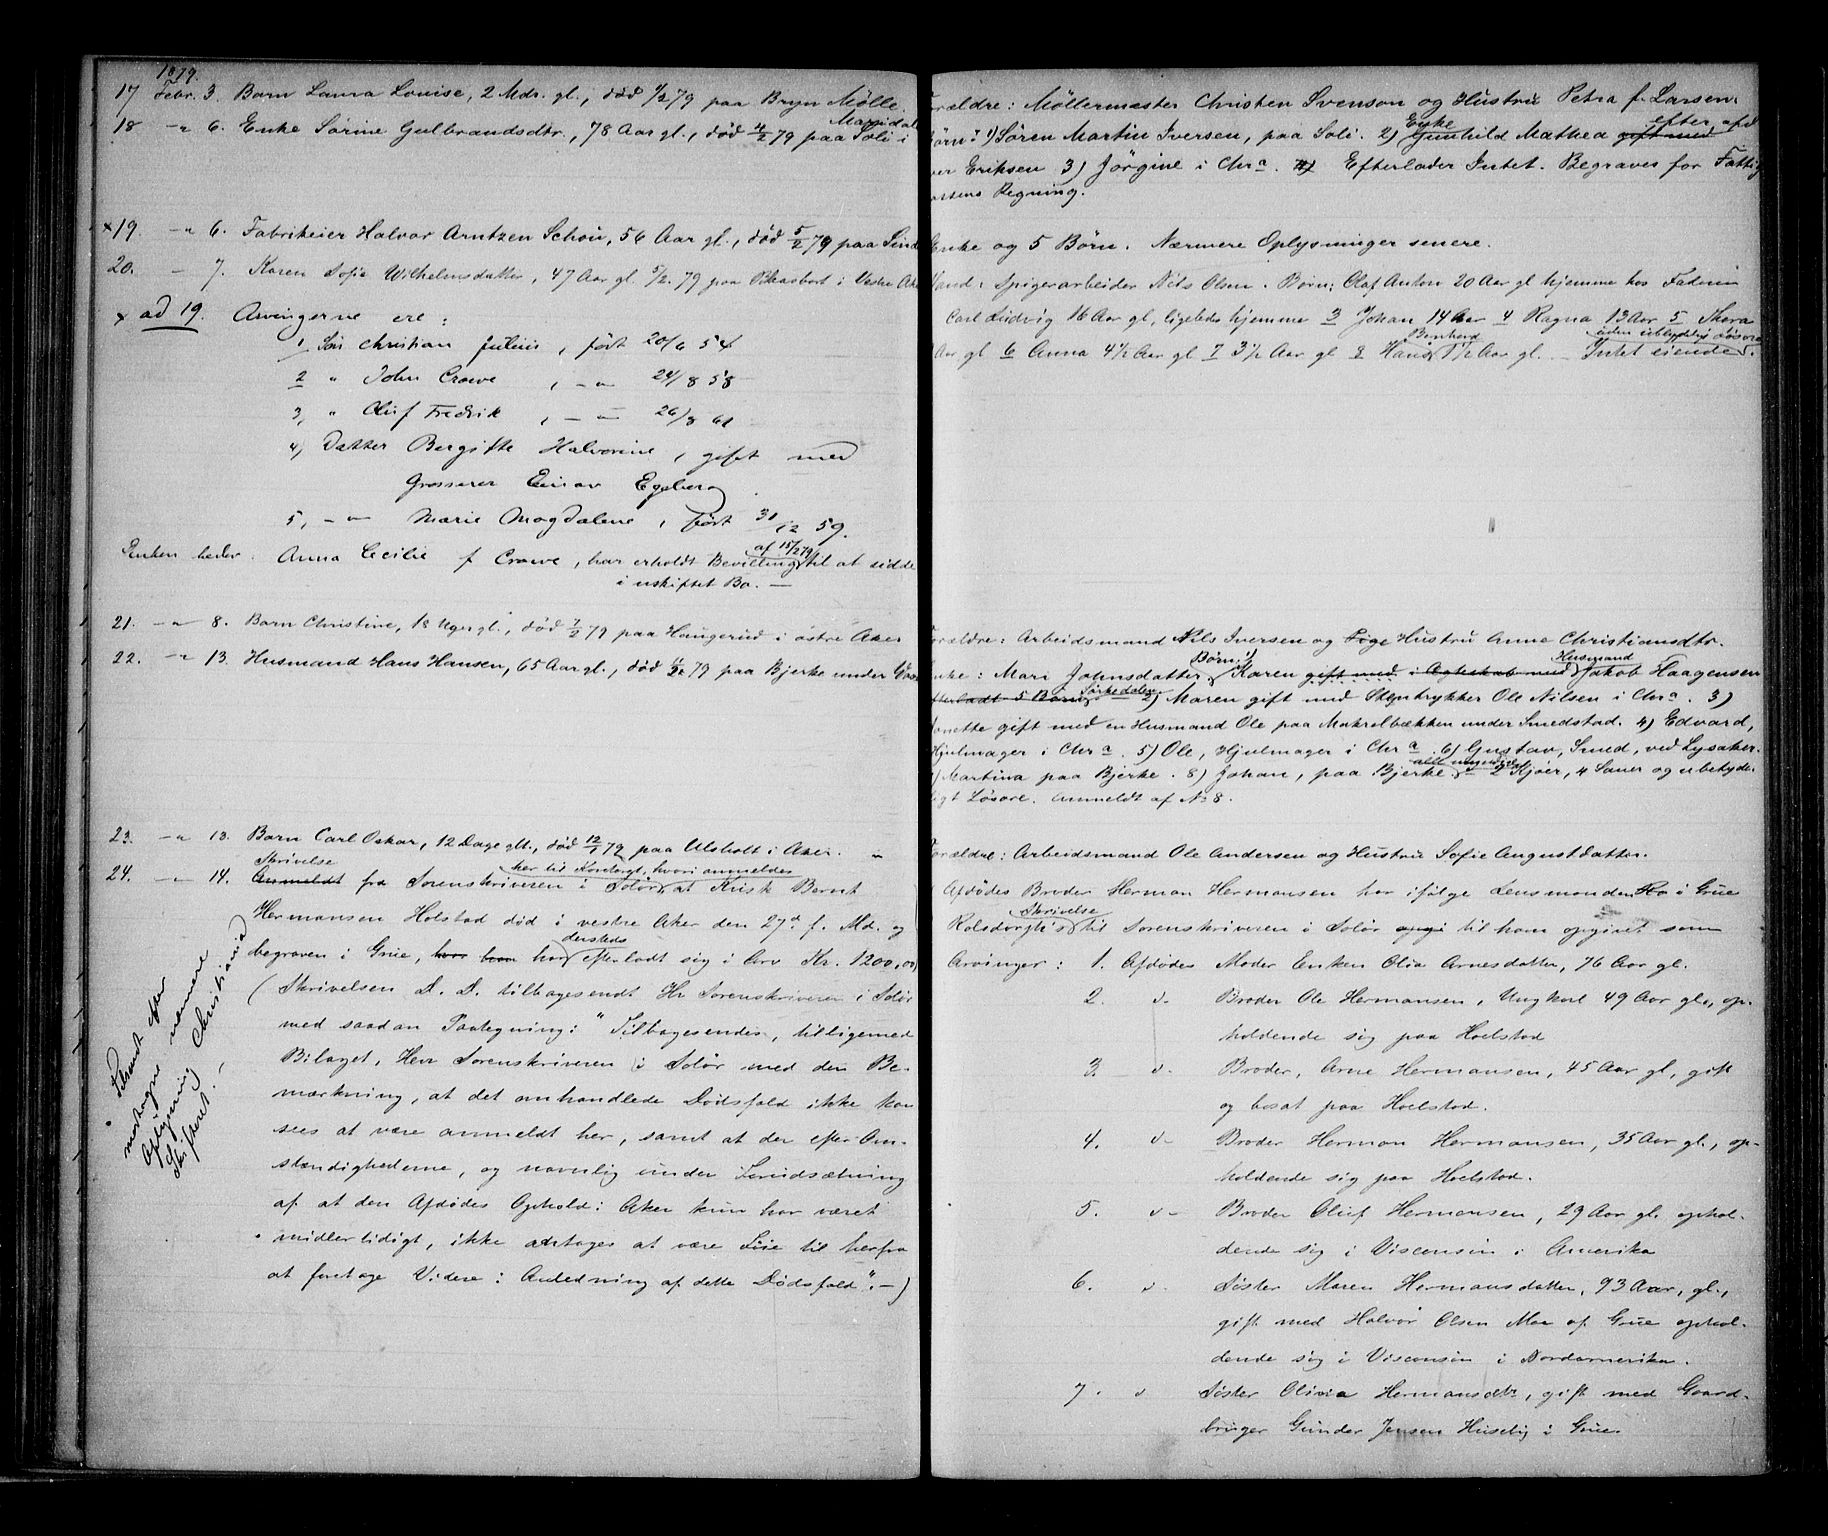 1879.
17 Febr. 3. Barn Laura Louise, 2 Mdr. gl., død 1/2 79 paa Bryn Mølle.
Maridal
18 -"- 6. Enke Sørine Gulbrandsdtr., 78 Aar gl., død 4/2 79 paa Soli i
x 19. -"- 6. Fabrikeier Halvor Arntzen Schou, 56 Aar gl., død 5/2 79 paa Lind
20. - 7. Karen Sofie Wilhelmsdatter, 47 Aar gl. 5/2 79 paa i Vestre Ake
x ad 19. Arvingerne ere:
1 Søn Christian Julius, født 20/6 54
2 " John Crowe, -"- 24/8 58
3, " Oluf Fredrik, -"- 26/8 61
4) Datter Bergitte Halvorine, gift med
Grosserer Einar Egeberg.
5, -"- Marie Magdalene, født 31/12 59.
af 15/2 79
Enken heder. Anna Cecilie f Crowe, har erholdt Bevilling til at sidde
i uskiftet Bo. —
21. -"- 8. Barn Christine, 18 Uger gl., død 7/2 79 paa Haugerud i østre Aker
22. -"- 13. Husmand Hans Hansen, 65 Aar gl., død 79 paa Bjerke under
23. -"- 13. Barn Carl Oskar, 12 Dage glt., død 12/1 79 paa Ulsholt i Aker.
Skrivelse her til Kontoret, hvori anmeldes
24. -"- 14. Anmeldt fra Sorenskriveren i Solør at Kusk Bernt
Hermansen Holstad død i vestre Aker den 27d f. Md. og
dersteds
begraven i Grue, hvor han har efterladt sig i Arv Kr. 1200,00
(Skrivelsen D. D. tilbagesendt Hr Sorenskriveren i Solør
med saadan Paategning: "Tilbagesendes, tilligemed
Bilaget, Herr Sorenskriveren i Solør med den Be-
mærkning, at det omhandlede Dødsfald ikke kan
sees at være anmeldt her, samt at der efter Om-
stændighederne, og navnlig under Forudsætning
af at den Afdødes Ophold i Aker kun har været
midlertidigt, ikke antages at være Føie til herfra
at foretage Videre i Anledning af dette Dødsfald". —)
efter
modtagne nærmere
Oplysning
af Christiania
Skifteret. —
Forældre: Møllermester Christen Svenson og Hustru Petra f. Larsen.
Enke efter afd
Børn: 1) Søren Martin Iversen, paa Soli. 2) Gunhild Mathea gift med
Eriksen 3) Jørgine i Chra. 4) Efterlader Intet. Begraves for Fattig
kassens Regning.
Enke og 5 Børn. Nærmere Oplysninger senere.
Mand: Spigerarbeider Nils Olsen. Børn: Olaf Anton 20 Aar gl hjemme hos Faderen
Carl Ludvig 16 Aar gl, ligeledes hjemme 3 Johan 14 Aar 4 Ragna 13 Aar 5 Thora
Bernhard uden ubetydelig Løsøre
Aar gl 6 Anna 4 1/2 Aar gl 7 3 1/2 Aar gl 8 Hans 1 1/2 Aar gl. — Intet eiende.
Forældre: Arbeidsmand Nils Iversen og Pige Hustru Anne Christiansdtr.
Børn: 1) Husmand
Enke: Mari Johnsdatter Karen gift med i Ægteskab med Jakob Haagensen
Sørkedalen
efterladt 5 Børn: 2) Maren gift med Stentrykker Ole Nilsen i Chra. 3)
gift med en Husmand Ole paa Makrelbækken under Smedstad. 4) Edvard,
Hjulmager i Chra. 5) Ole, Hjulmager i Chra. 6) Gustav, Smed, ved Lysaker.
alle myndige
7) Martina paa Bjerke. 8) Johan, paa Bjerke. — 2 Kjøer, 4 Sauer og ubetyde-
ligt Løsøre. Anmeldt af No 8.
Forældre: Arbeidsmand Ole Andersen og Hustru Sofie Augustdatter.
Afdødes Broder Herman Hermansen har ifølge Lensmanden i Grue
Skrivelse
til Sorenskriveren i Solør opgi til ham opgivet som
Arvinger: 1. Afdødes Moder Enken Olia Arnesdatter, 76 Aar gl.
2. d. Broder Ole Hermansen, Ungkarl 49 Aar gl., op-
holdende sig paa Hoelstad
3. d. Broder, Arne Hermansen, 45 Aar gl, gift
og bosat paa Hoelstad.
4. d- Broder Herman Hermansen, 35 Aar gl., op-
holdende sig paa Hoelstad.
5. d- Broder Oluf Hermansen, 29 Aar gl. ophol-
dende sig i Visconsin i Amerika
6. d. Søster Maren Hermansdatter, 93 Aar, gl.,
gift med Halvor Olsen Moe af Grue ophol-
dende sig i Visconsin i Nordamerika.
7. d Søster Olivia Hermansdtr, gift med Gaard-
bruger Gunder Jensen Huseby i Grue.